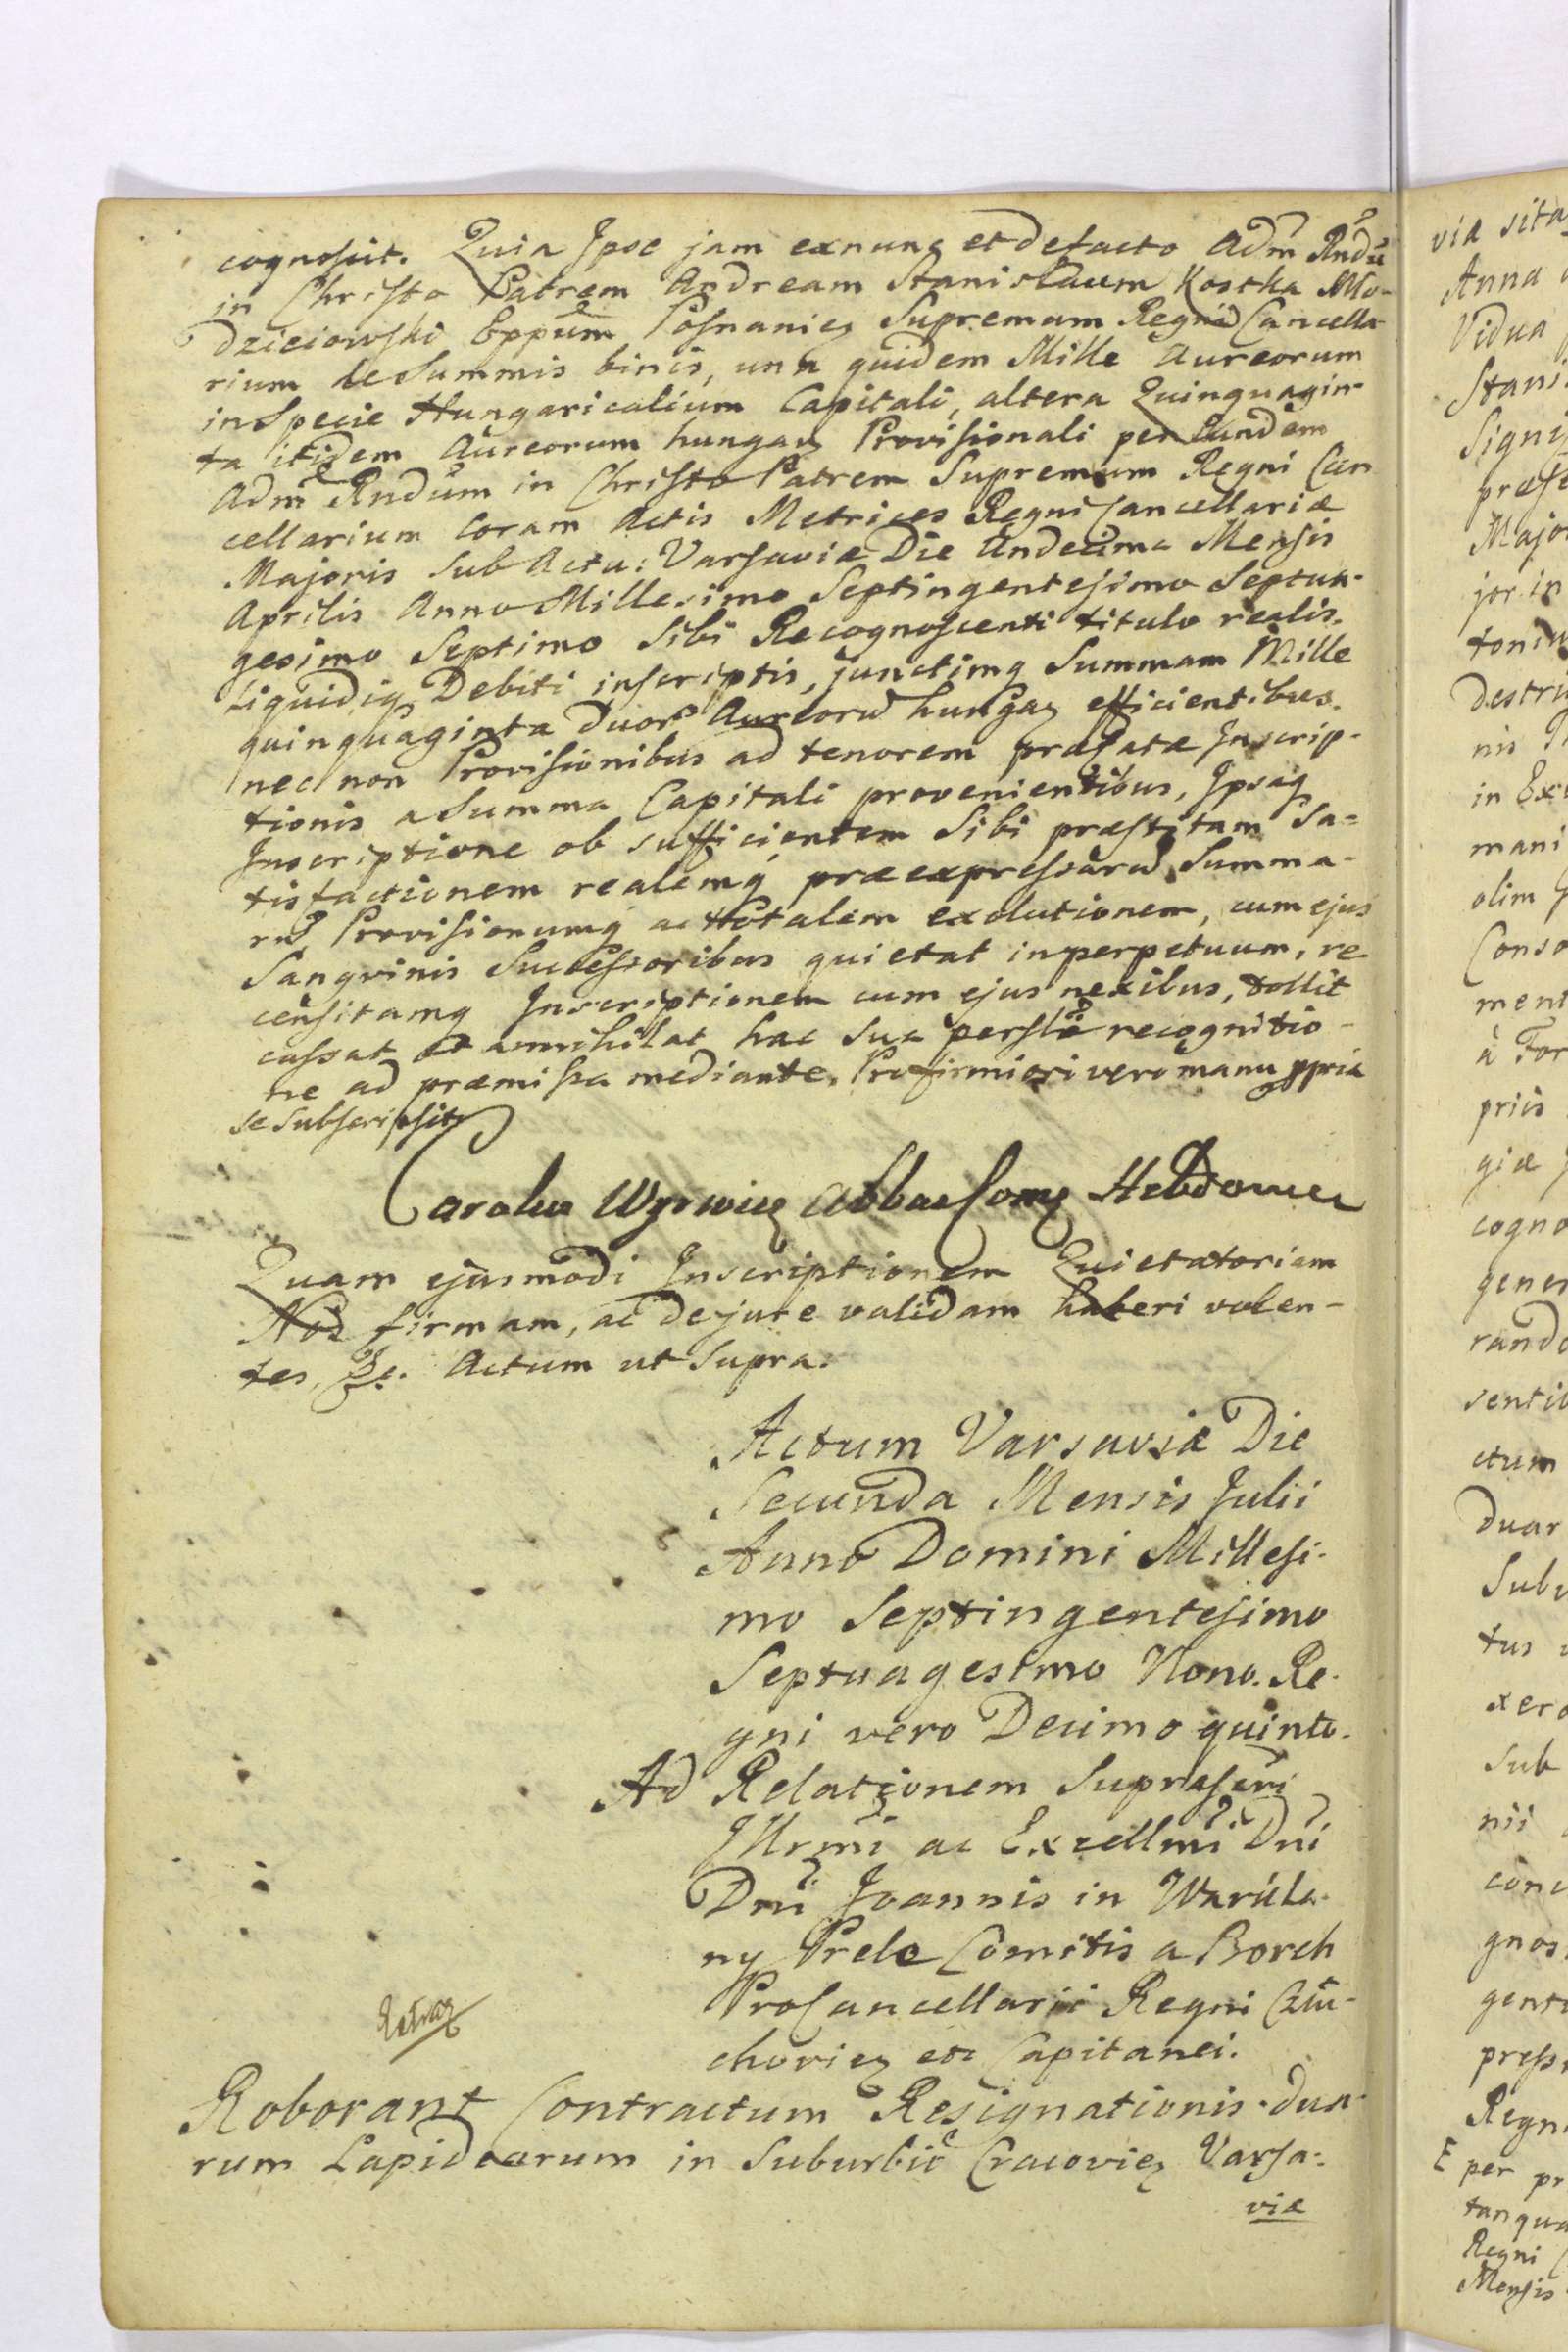 cognoscit. Quia Ipse jam exnunc et defacto Adm̃ Rñdũ
in Christo Patrem Andream Stanislaum Kostka Mło-
dzieiowski Eppũm Posnaniẽ Supremum Regni Cancella-
rium de Summis binis, una quidem Mille Aureorum
in Specie Hungaricalium Capitali, altera Quinquagin-
ta itidem Aureorum hungar. Provisionali per Eundem
Adm̃ Rñdum in Christo Patrem Supremum Regni Can
cellarium Coram Actis Metrices Regni Cancellariæ
Majoris sub Actu: Varsaviæ Die Undecima Mensis
Aprilis Anno Millesimo Septingentesimo Septua-
gesimo Septimo Sibi Recognoscenti titulo realis.
Liquidiq; Debiti inscriptis, junctimq; Summam Mille
quinquaginta duor. Aureorũ hungar. efficientibus.
nec non Provisionibus ad tenorem præfatæ Inscrip-
tionis a Summa Capitali provenientibus, Ipsaq;
Inscriptione ob sufficientem Sibi præstitam Sa-
tisfactionem realemq; præexpressarũ Summa-
rũ, Provisionumq; ac totalem exolutionem, cum ejus
Sangvinis Successoribus quietat in perpetuum, re
censitamq; Inscriptionem cum ejus nexibus, tollit
cassat et annihilat hac Sua persl̃i recognitio-
ne ad præmissa mediante. Pro firmiori vero manu ppria
se subscripsit
Carolus Wyrwicz Abbas Com̃ Hebdovien
Quam ejusmodi Inscriptionem Quietatoriam
Nos firmam, ac de jure validam haberi volen-
tes, &c. Actum ut Supra.
Actum Varsaviæ Die
Secunda Mensis Julii
Anno Domini Millesi-
mo Septingentesimo
Septuagesimo Nono. Re-
gni vero Decimo quinto.
Ad Relationem Suprascri
Illrmi ac Excellmi Dñi
Dñi Joannis in Warkla-
ny Prele Comitis a Borch
ProCancellarii Regni Clu-
choviẽ etc Capitanei.
Roborant Contractum Resignationis dua-
rum Lapidearum in Suburbio Cracoviẽ Varsa-
viæ
via sita
Anna
Vidua
Stani
Signi
præfe
Majo
jor in
toni
destri
nis
in Ex
mani
olim
Conso
ment
à For
priis
giæ
cogno
gener
rando
sentib
ctum
duar
Sub
tus
xero
sub
nii
conc
gnos
gent
press
Regni
per pr
tanqua
Regni
Mensis